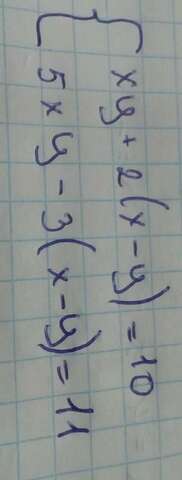 xy + 2(x - y) = 10
5xy - 3(x - y) = 11